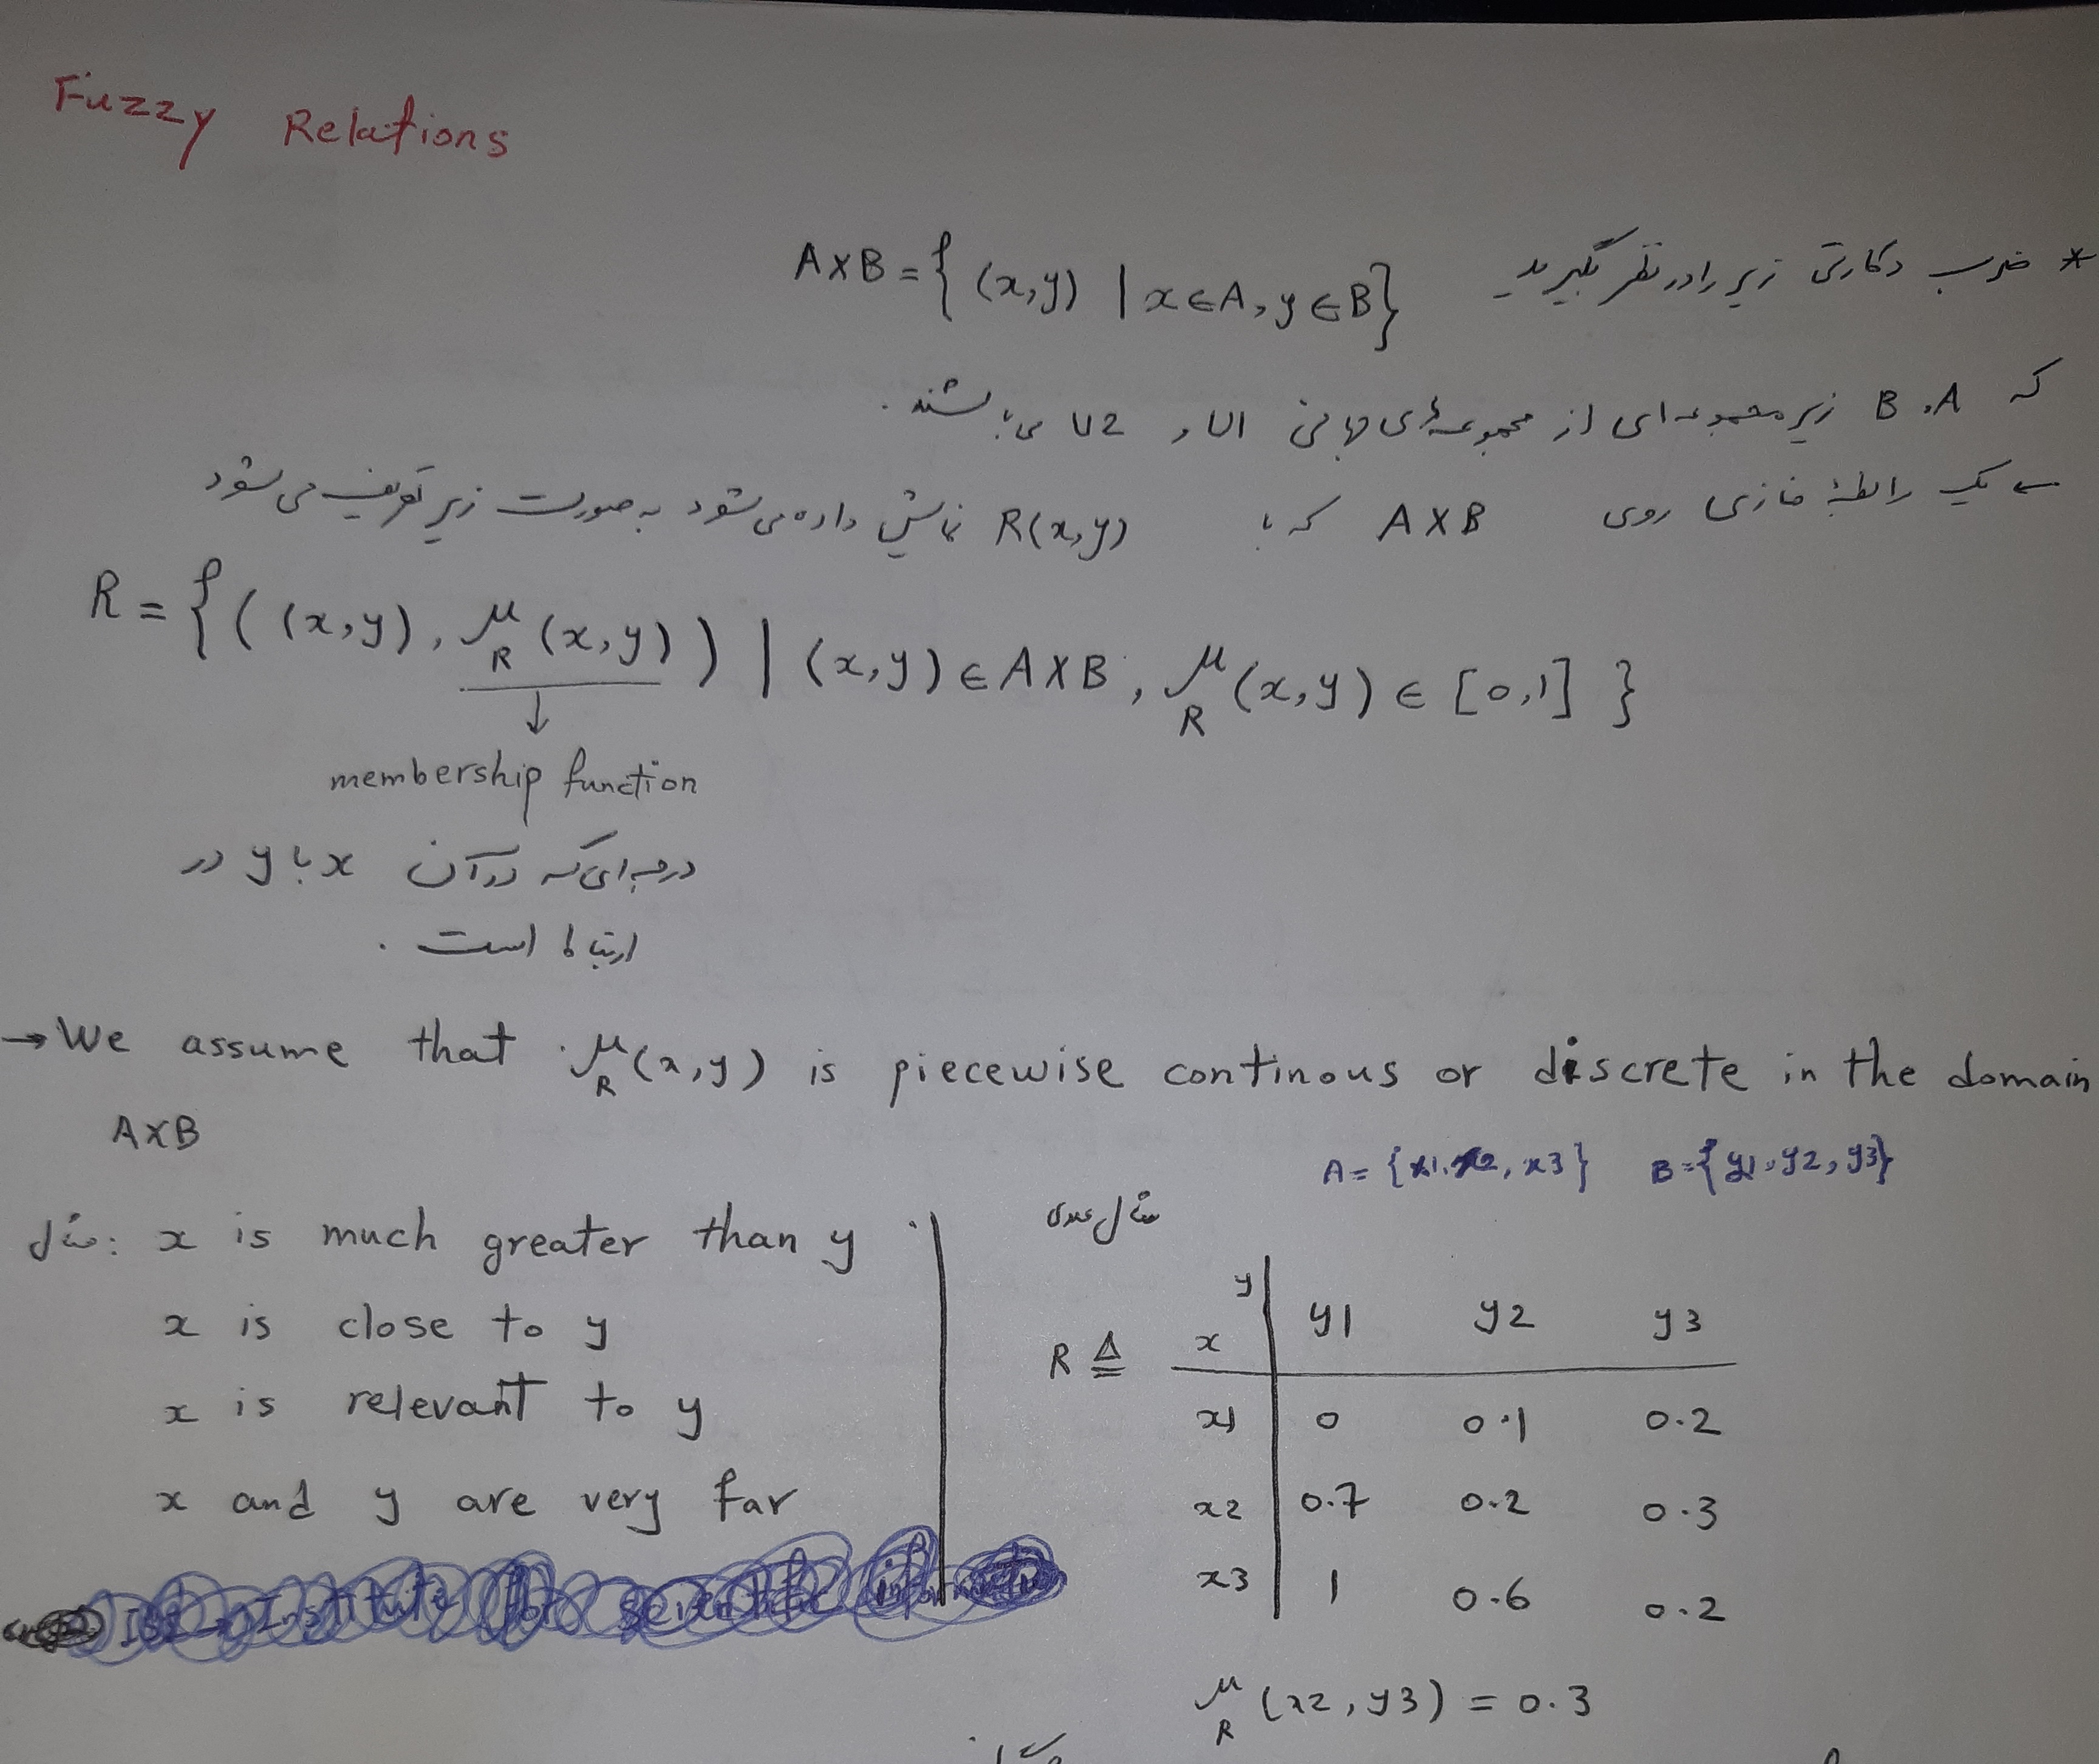 Fuzzy Relations
* ضرب دکارتی زیر را در نظر بگیرید A×B = { (x,y) | x∈A, y∈B }
که A و B زیر مجموعه ای از مجموعه های جهانی U1 و U2 می باشند.
← یک رابطهٔ فازی روی A×B که با R(x,y) نمایش داده می شود به صورت زیر تعریف می شود
R = { ( (x,y), μ_R (x,y) ) | (x,y) ∈ A×B, μ_R (x,y) ∈ [0,1] }
↓
membership function
درجه ای که در آن x با y در
ارتباط است.
→ We assume that μ_R (x,y) is piecewise continous or discrete in the domain
A×B
A = {x1, x2, x3} B = {y1, y2, y3}
مثال: x is much greater than y
x is close to y
x is relevant to y
x and y are very far
مثال عددی
R ≜
x y y1 y2 y3
x1 0 0.1 0.2
x2 0.7 0.2 0.3
x3 1 0.6 0.2
μ_R (x2, y3) = 0.3